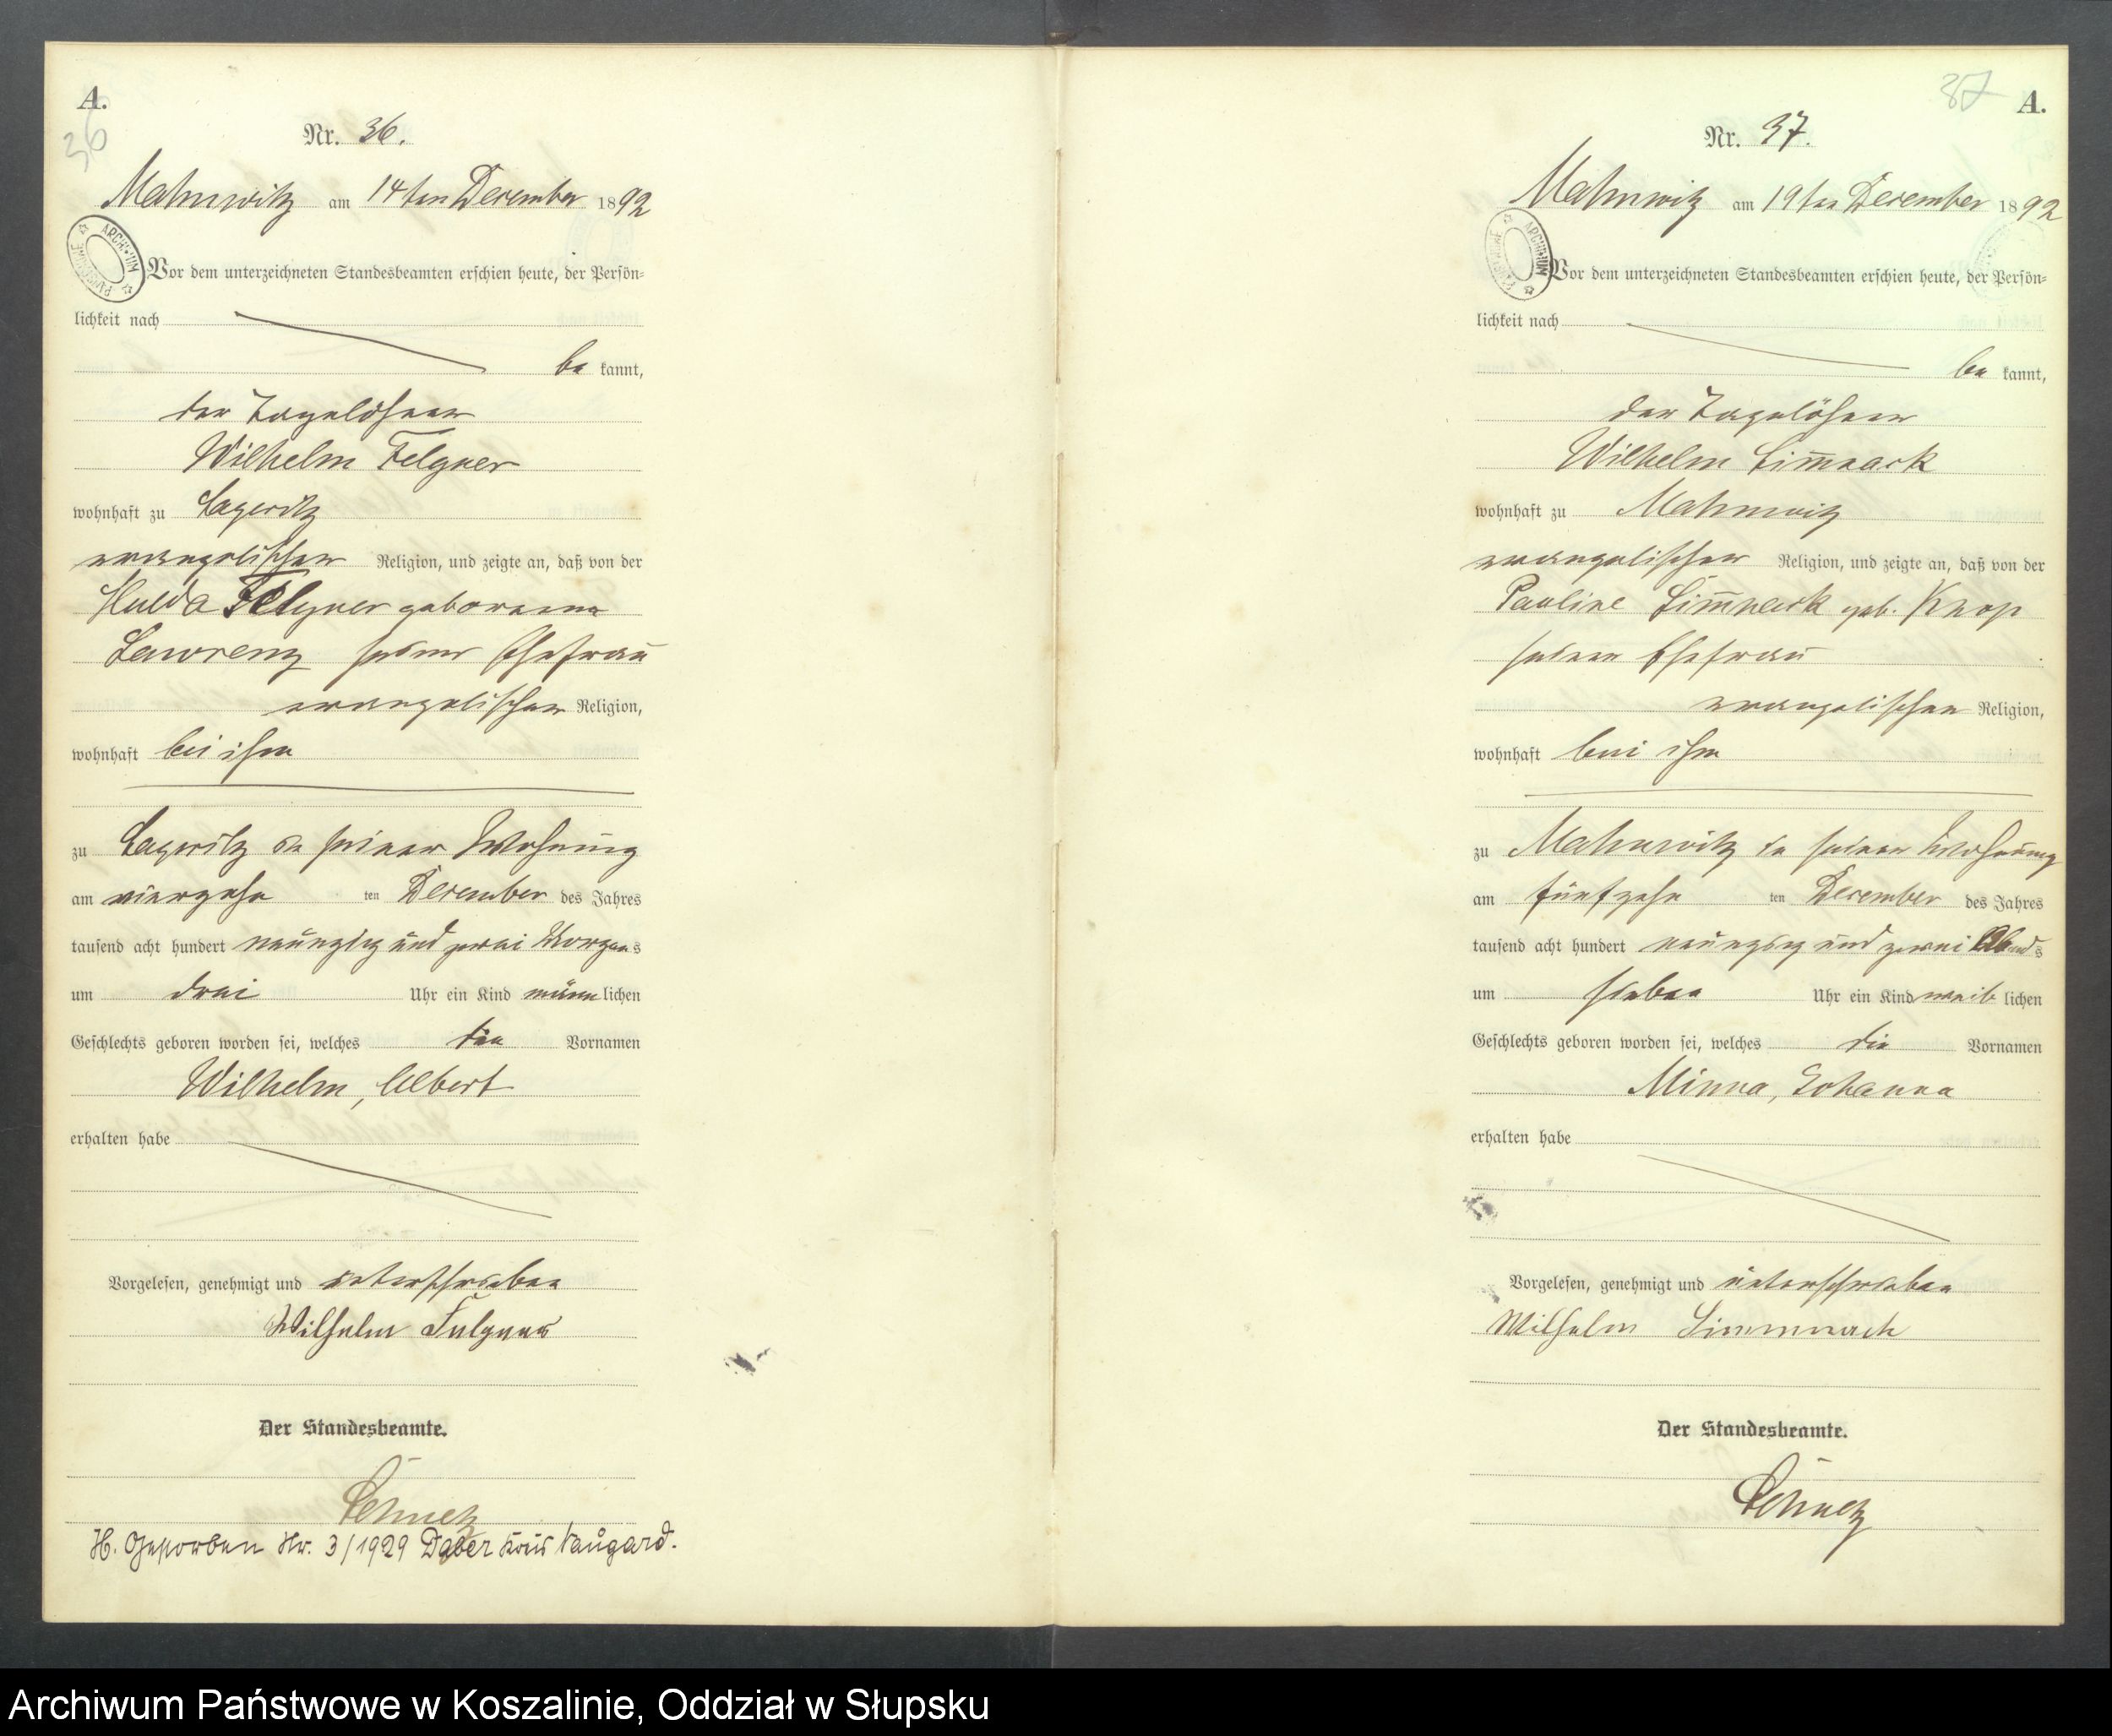 A.
36
Nr. 36.
Mahnwitz am 14ten December 1892
ARCHIWUM PAŃSTWOWE
Vor dem unterzeichneten Standesbeamten erschien heute, der Persön=
lichkeit nach
be kannt,
der Tagelöhner
Wilhelm Felgner
wohnhaft zu Zageritz
evangelischer Religion, und zeigte an, daß von der
Hulda Felgner geborene
Lawrenz seiner Ehefrau
evangelischer Religion,
wohnhaft bei ihm
zu Zageritz in seiner Wohnung
am vierzehn ten December des Jahres
tausend acht hundert neunzig und zwei Morgens
um drei Uhr ein Kind männlichen
Geschlechts geboren worden sei, welches die Vornamen
Wilhelm, Albert
erhalten habe
Vorgelesen, genehmigt und unterschrieben
Wilhelm Felgner
Der Standesbeamte.
H. Gestorben Nr. 3/1929 Daber Kreis Naugard.
37
A.
Nr. 37.
Mahnwitz am 19ten December 1892
ARCHIWUM PAŃSTWOWE
Vor dem unterzeichneten Standesbeamten erschien heute, der Persön=
lichkeit nach
be kannt,
der Tagelöhner
Wilhelm Lim̅nack
wohnhaft zu Mahnwitz
evangelischer Religion, und zeigte an, daß von der
Pauline Lim̅nack geb. Knop
seiner Ehefrau
evangelischer Religion,
wohnhaft bei ihm
zu Mahnwitz in seiner Wohnung
am fünfzehn ten December des Jahres
tausend acht hundert neunzig und zwei Abends
um sieben Uhr ein Kind weib lichen
Geschlechts geboren worden sei, welches die Vornamen
Minna, Johanna
erhalten habe
Vorgelesen, genehmigt und unterschrieben
Wilhelm Limmnack
Der Standesbeamte.
Archiwum Państwowe w Koszalinie, Oddział w Słupsku